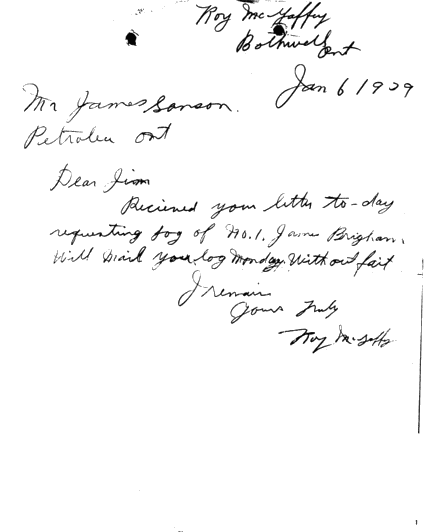 Roy McGaffey
Bothwell
Ont
Jan 6 1929
Mr James Sanson.
Petrolea Ont
Dear Jim
Recieved your letter to-day
requesting log of No.1. James Brigham.
Will Mail you log Monday Without fail
I remain
Yours Truly
Roy McGaffey
1